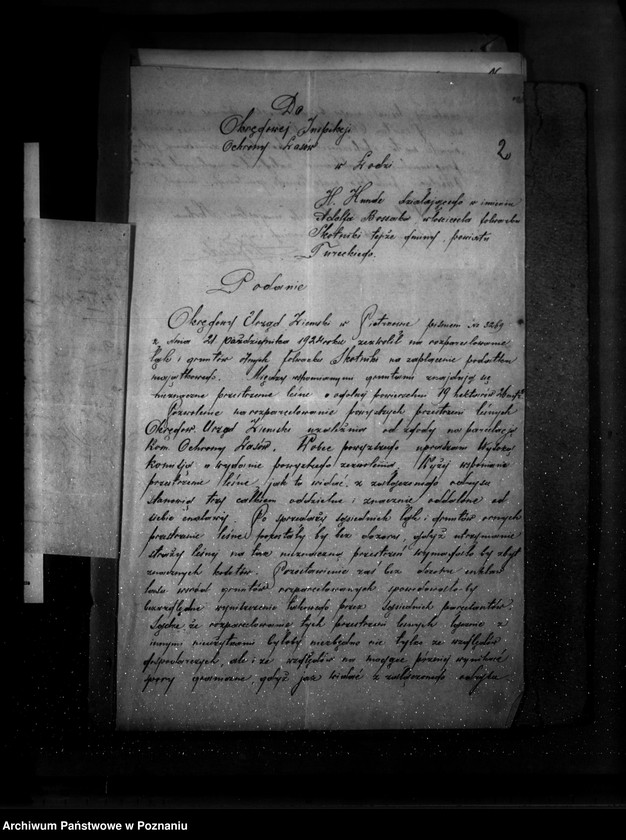 2
Do
Okręgowej Inspekcji
Ochrony Lasów
w Łodzi
H. Hunde działającego w imieniu
Adolfa właściciela folwarku
Skotniki tejże gminy, powiatu
Tureckiego.
Podanie
Okręgowy Urząd Ziemski w Piotrkowie pismem № 3269
z dnia 21 października 1924 roku zezwolił na rozparcelowanie
łąk i gruntów ornych folwarku Skotniki na zapłacenie podatku
majątkowego. Między wspomnianymi gruntami znajdują się
nieznaczne przestrzenie leśne o ogólnej powierzchni 19 hektarów
Pozwolenie na rozparcelowanie powyższych przestrzeni leśnych
Okręgowy Urząd Ziemski uzależnia od zgody na parcelację
Kom. Ochrony Lasów. Wobec powyższego upraszam Wysoką
Komisję o wydanie powyższego zezwolenia. Wyżej wspomniane
przestrzenie leśne, jak to widać z załączonego odrysu
stanowią trzy całkiem oddzielne i znacznie oddalone od
siebie enklawy. Po sprzedaży sąsiednich łąk i gruntów ornych
przestrzenie leśne pozostały by bez dozoru, gdyż utrzymanie
straży leśnej na tak nieznaczną przestrzeń wymagało by zbyt
znacznych kosztów. Pozostawienie zaś bez dozoru enklaw
lasu wśród gruntów rozparcelowanych spowodowało by
bezwzględne wyniszczenie takowego przez sąsiednich parcelantów.
Sądzę, że rozparcelowanie tych przestrzeni leśnych łącznie z
innymi nieużytkami byłoby niezbędne nie tylko ze względów
gospodarczych, ale i ze względów na mogące później wyniknąć
spory graniczne, gdyż jak widać z załączonego odrysu
Archiwum Państwowe w Poznaniu